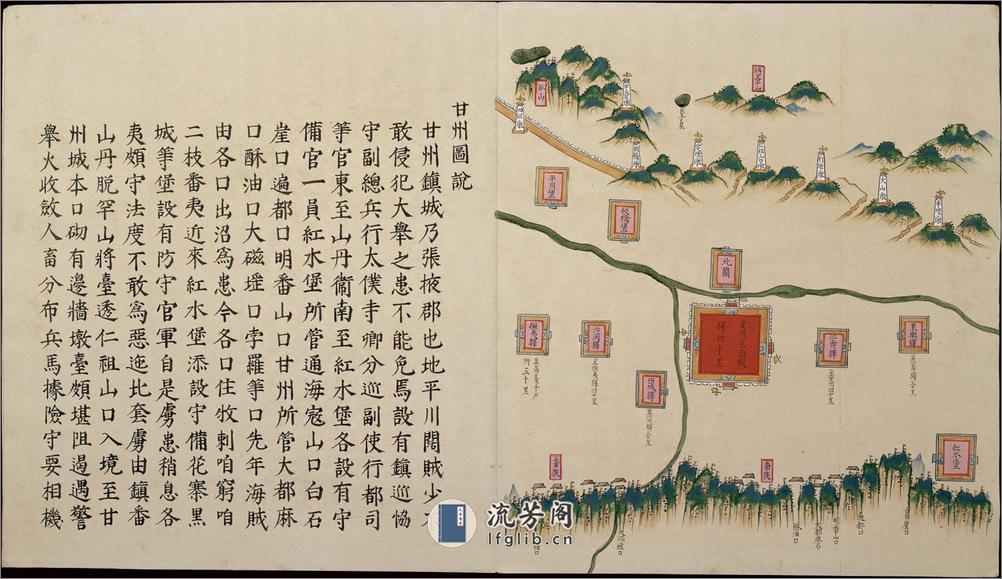 甘州圖說
甘州鎮城乃張掖郡也地平川闊賊少
敢侵犯大舉之患不能免焉設有鎮巡恊
守副總兵行太僕寺卿分巡副使行都司
等官東至山丹衞南至紅水堡各設有守
備官一員紅水堡所管通海寇山口白石
崖口遍都口明番山口甘州所管大都麻
口酥油口大磁磘口孛羅等口先年海賊
由各口出沼為患今各口住牧剌咱窮咱
二枝番夷近來紅水堡添設守備花寨黑
城等堡設有防守官軍自是虜患稍息各
夷頗守法度不敢為惡迤北套虜由鎮番
山丹脱罕山將臺透仁祖山口入境至甘
州城本口砌有邊牆墩臺頗堪阻遏遇警
舉火收斂人畜分布兵馬據險守要相機
平川堡
板橋堡
北關
甘州至西城
驛四十里
撫夷驛
沙河驛
西城驛
仁壽驛
東樂驛
紅水堡
番族
番族
流芳阁
lfglib.cn